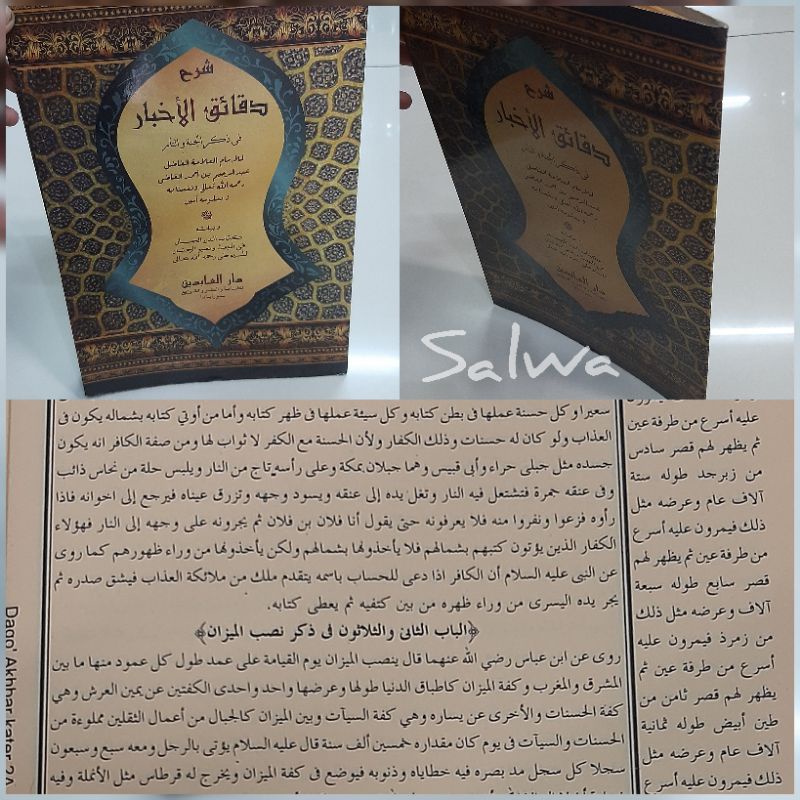 شرح
دقائق الأخبار
فى ذكر الجنة والنار
للامام العلامة الفاضل
عبد الرحيم بن احمد القاضى
رحمه الله تعالى ونفعنا به
وبعلومه آمين
وبهامشه
دار العابدين
شرح
دقائق الأخبار
فى ذكر الجنة والنار
للامام العلامة الفاضل
دار العابدين
Salwa
سعيرا وكل حسنة عملها فى بطن كتابه وكل سيئة عملها فى ظهر كتابه وأما من أوتي كتابه بشماله يكون فى
العذاب ولو كان له حسنات وذلك الكفار ولأن الحسنة مع الكفر لا ثواب لها ومن صفة الكافر انه يكون
جسده مثل جبلى حراء وأبى قبيس وهما جبلان بمكة وعلى رأسه تاج من النار ويلبس حلة من نحاس ذائب
وفى عنقه جمرة فتشتعل فيه النار وتغل يده إلى عنقه ويسود وجهه وتزرق عيناه فيرجع إلى اخوانه فاذا
رأوه فزعوا ونفروا منه فلا يعرفونه حتى يقول أنا فلان بن فلان ثم يجرونه على وجهه إلى النار فهؤلاء
الكفار الذين يؤتون كتبهم بشمالهم فلا يأخذونها بشمالهم ولكن يأخذونها من وراء ظهورهم كما روى
عن النبى عليه السلام أن الكافر اذا دعى للحساب باسمه يتقدم ملك من ملائكة العذاب فيشق صدره ثم
يجر يده اليسرى من وراء ظهره من بين كتفيه ثم يعطى كتابه.
﴿الباب الثانى والثلاثون فى ذكر نصب الميزان﴾
روى عن ابن عباس رضي الله عنهما قال ينصب الميزان يوم القيامة على عمد طول كل عمود منها ما بين
المشرق و المغرب و كفة الميزان كاطباق الدنيا طولها وعرضها واحد واحدى الكفتين عن يمين العرش وهي
كفة الحسنات والأخرى عن يساره وهي كفة السيآت وبين الميزان كالجبال من أعمال الثقلين مملوءة من
الحسنات والسيآت فى يوم كان مقداره خمسين ألف سنة قال عليه السلام يؤتى بالرجل ومعه سبع وسبعون
سجلا كل سجل مد بصره فيه خطاياه وذنوبه فيوضع فى كفة الميزان ويخرج له قرطاس مثل الأنملة وفيه
عليه أسرع من طرفة عين
ثم يظهر لهم قصر سادس
من زبرجد طوله ستة
آلاف عام وعرضه مثل
ذلك فيمرون عليه أسرع
من طرفة عين ثم يظهر لهم
قصر سابع طوله سبعة
آلاف وعرضه مثل ذلك
من زمرذ فيمرون عليه
أسرع من طرفة عين ثم
يظهر لهم قصر ثامن من
طين أبيض طوله ثمانية
آلاف عام وعرضه مثل
ذلك فيمرون عليه أسرع
Daqo' Akhbar kater 2A